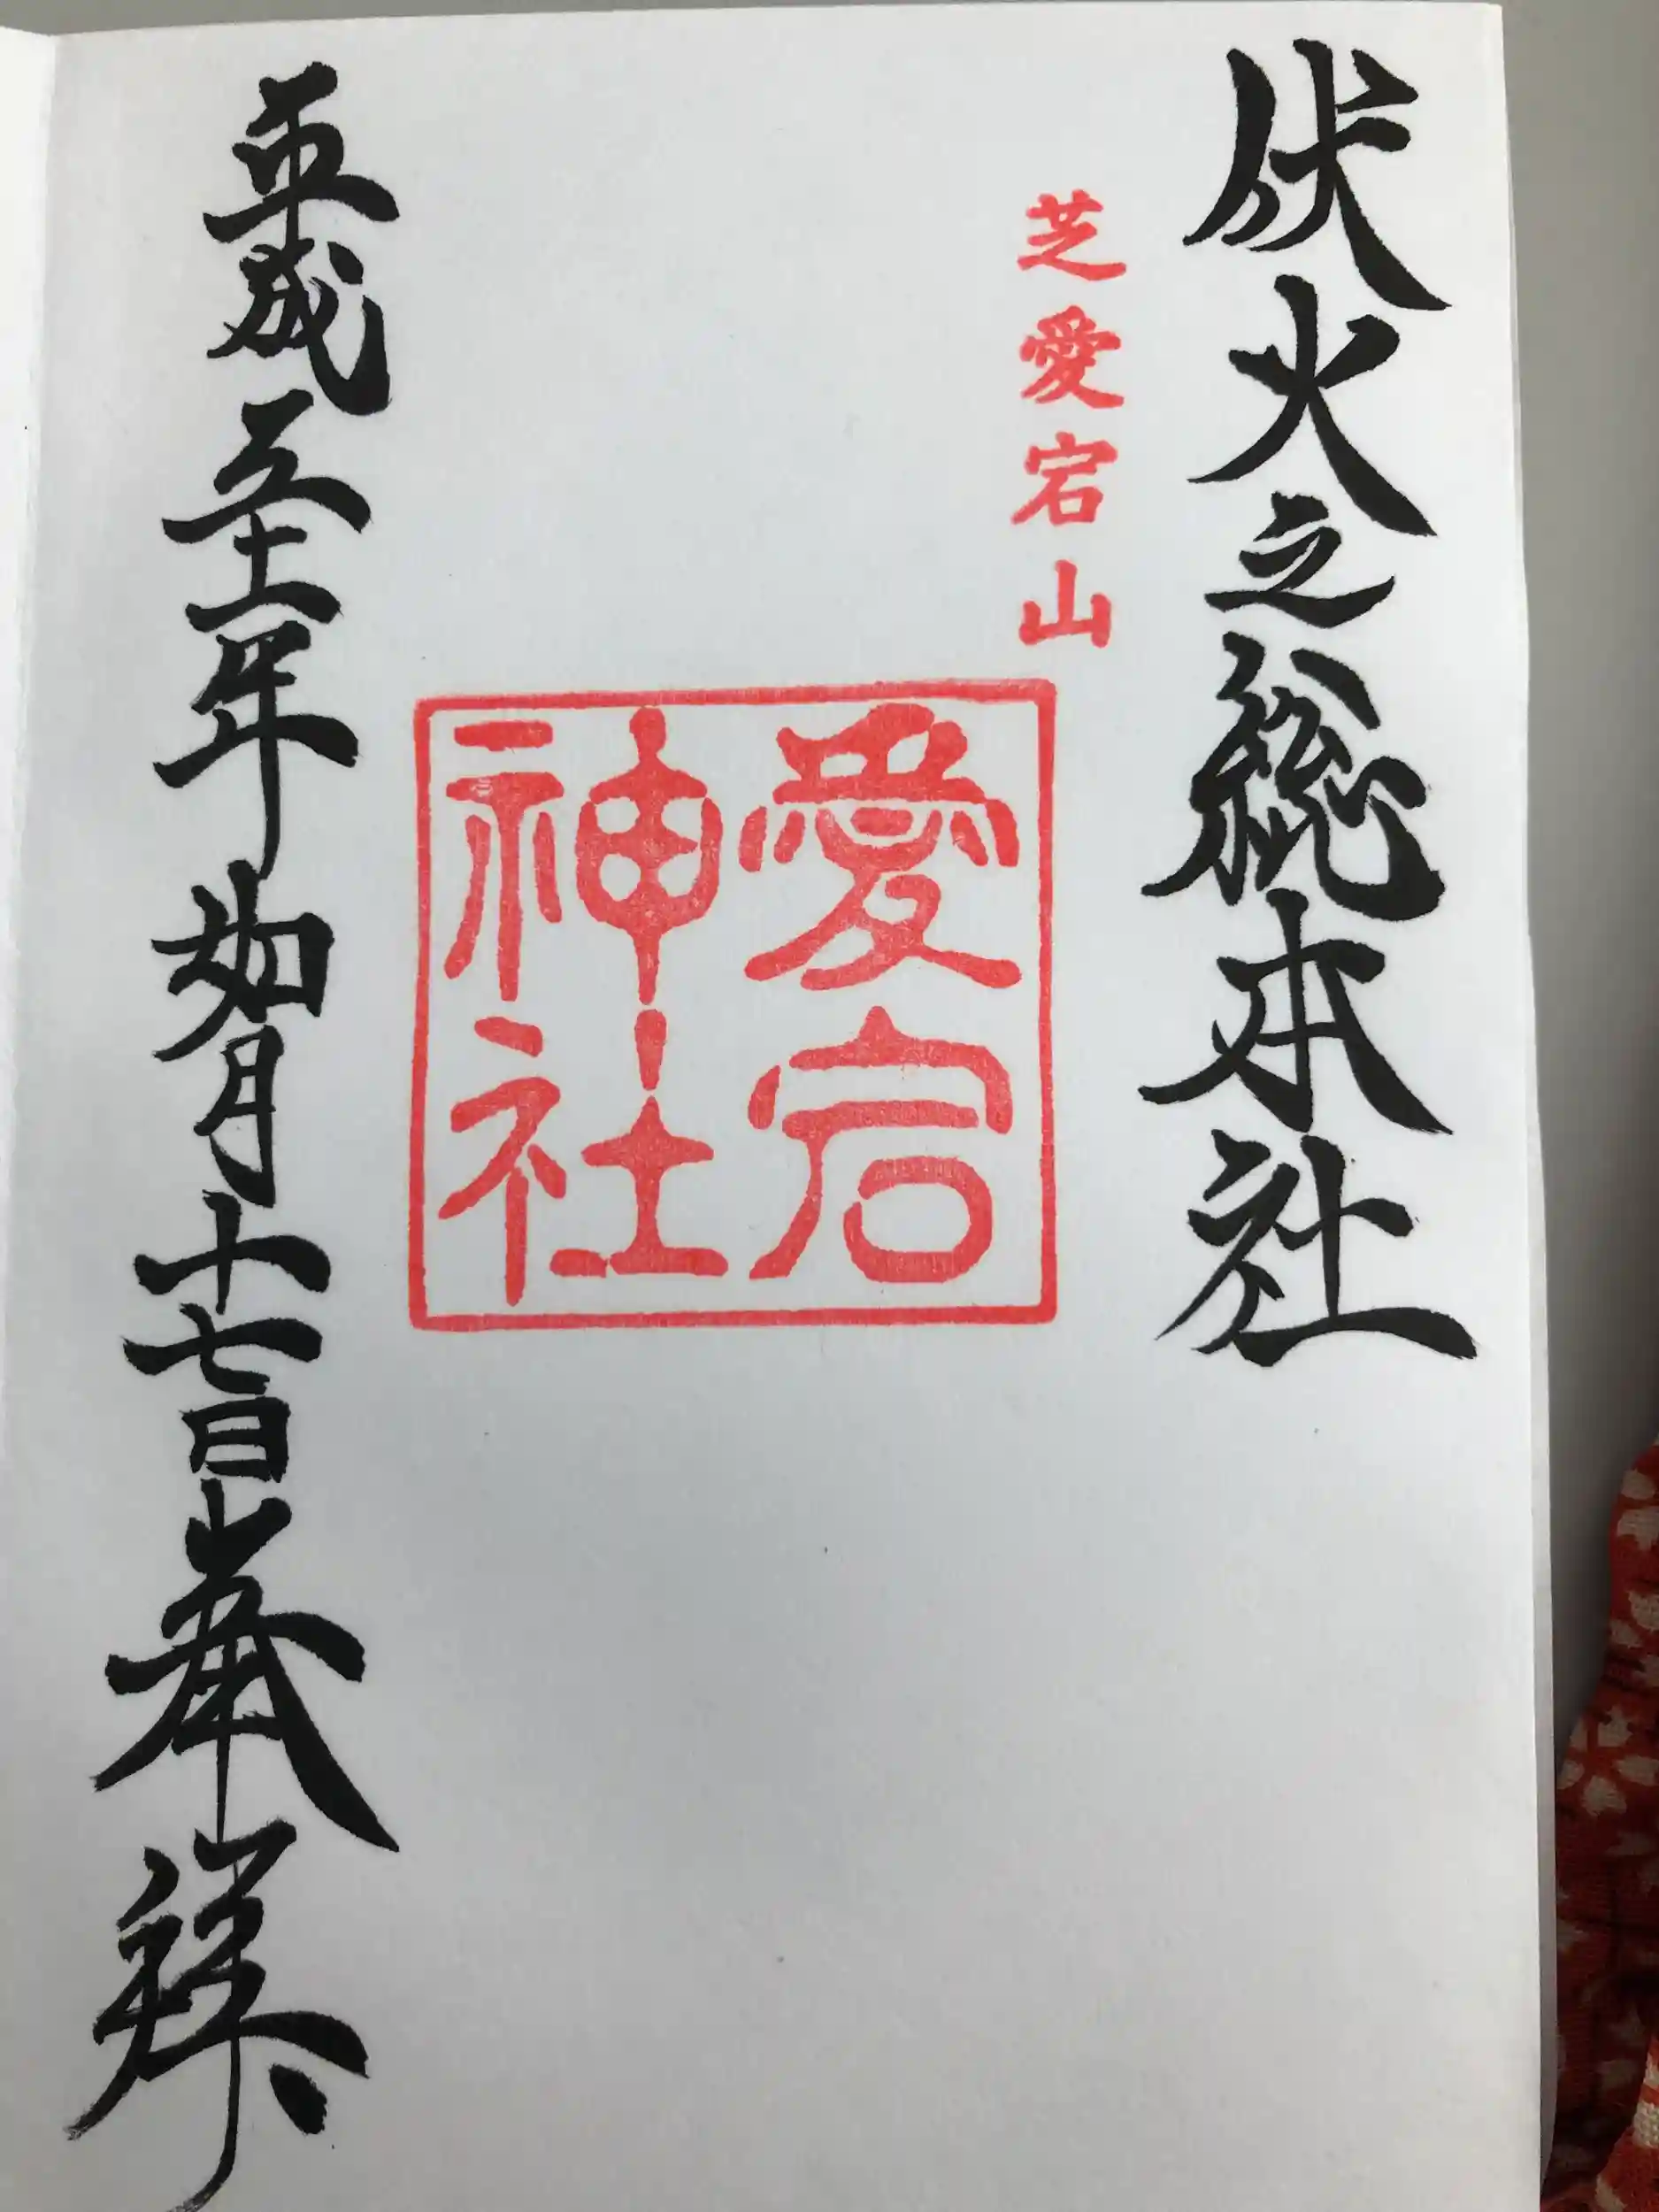 伏火之総本社
芝愛宕山
愛宕
神社
平成三十一年如月十七日奉拝